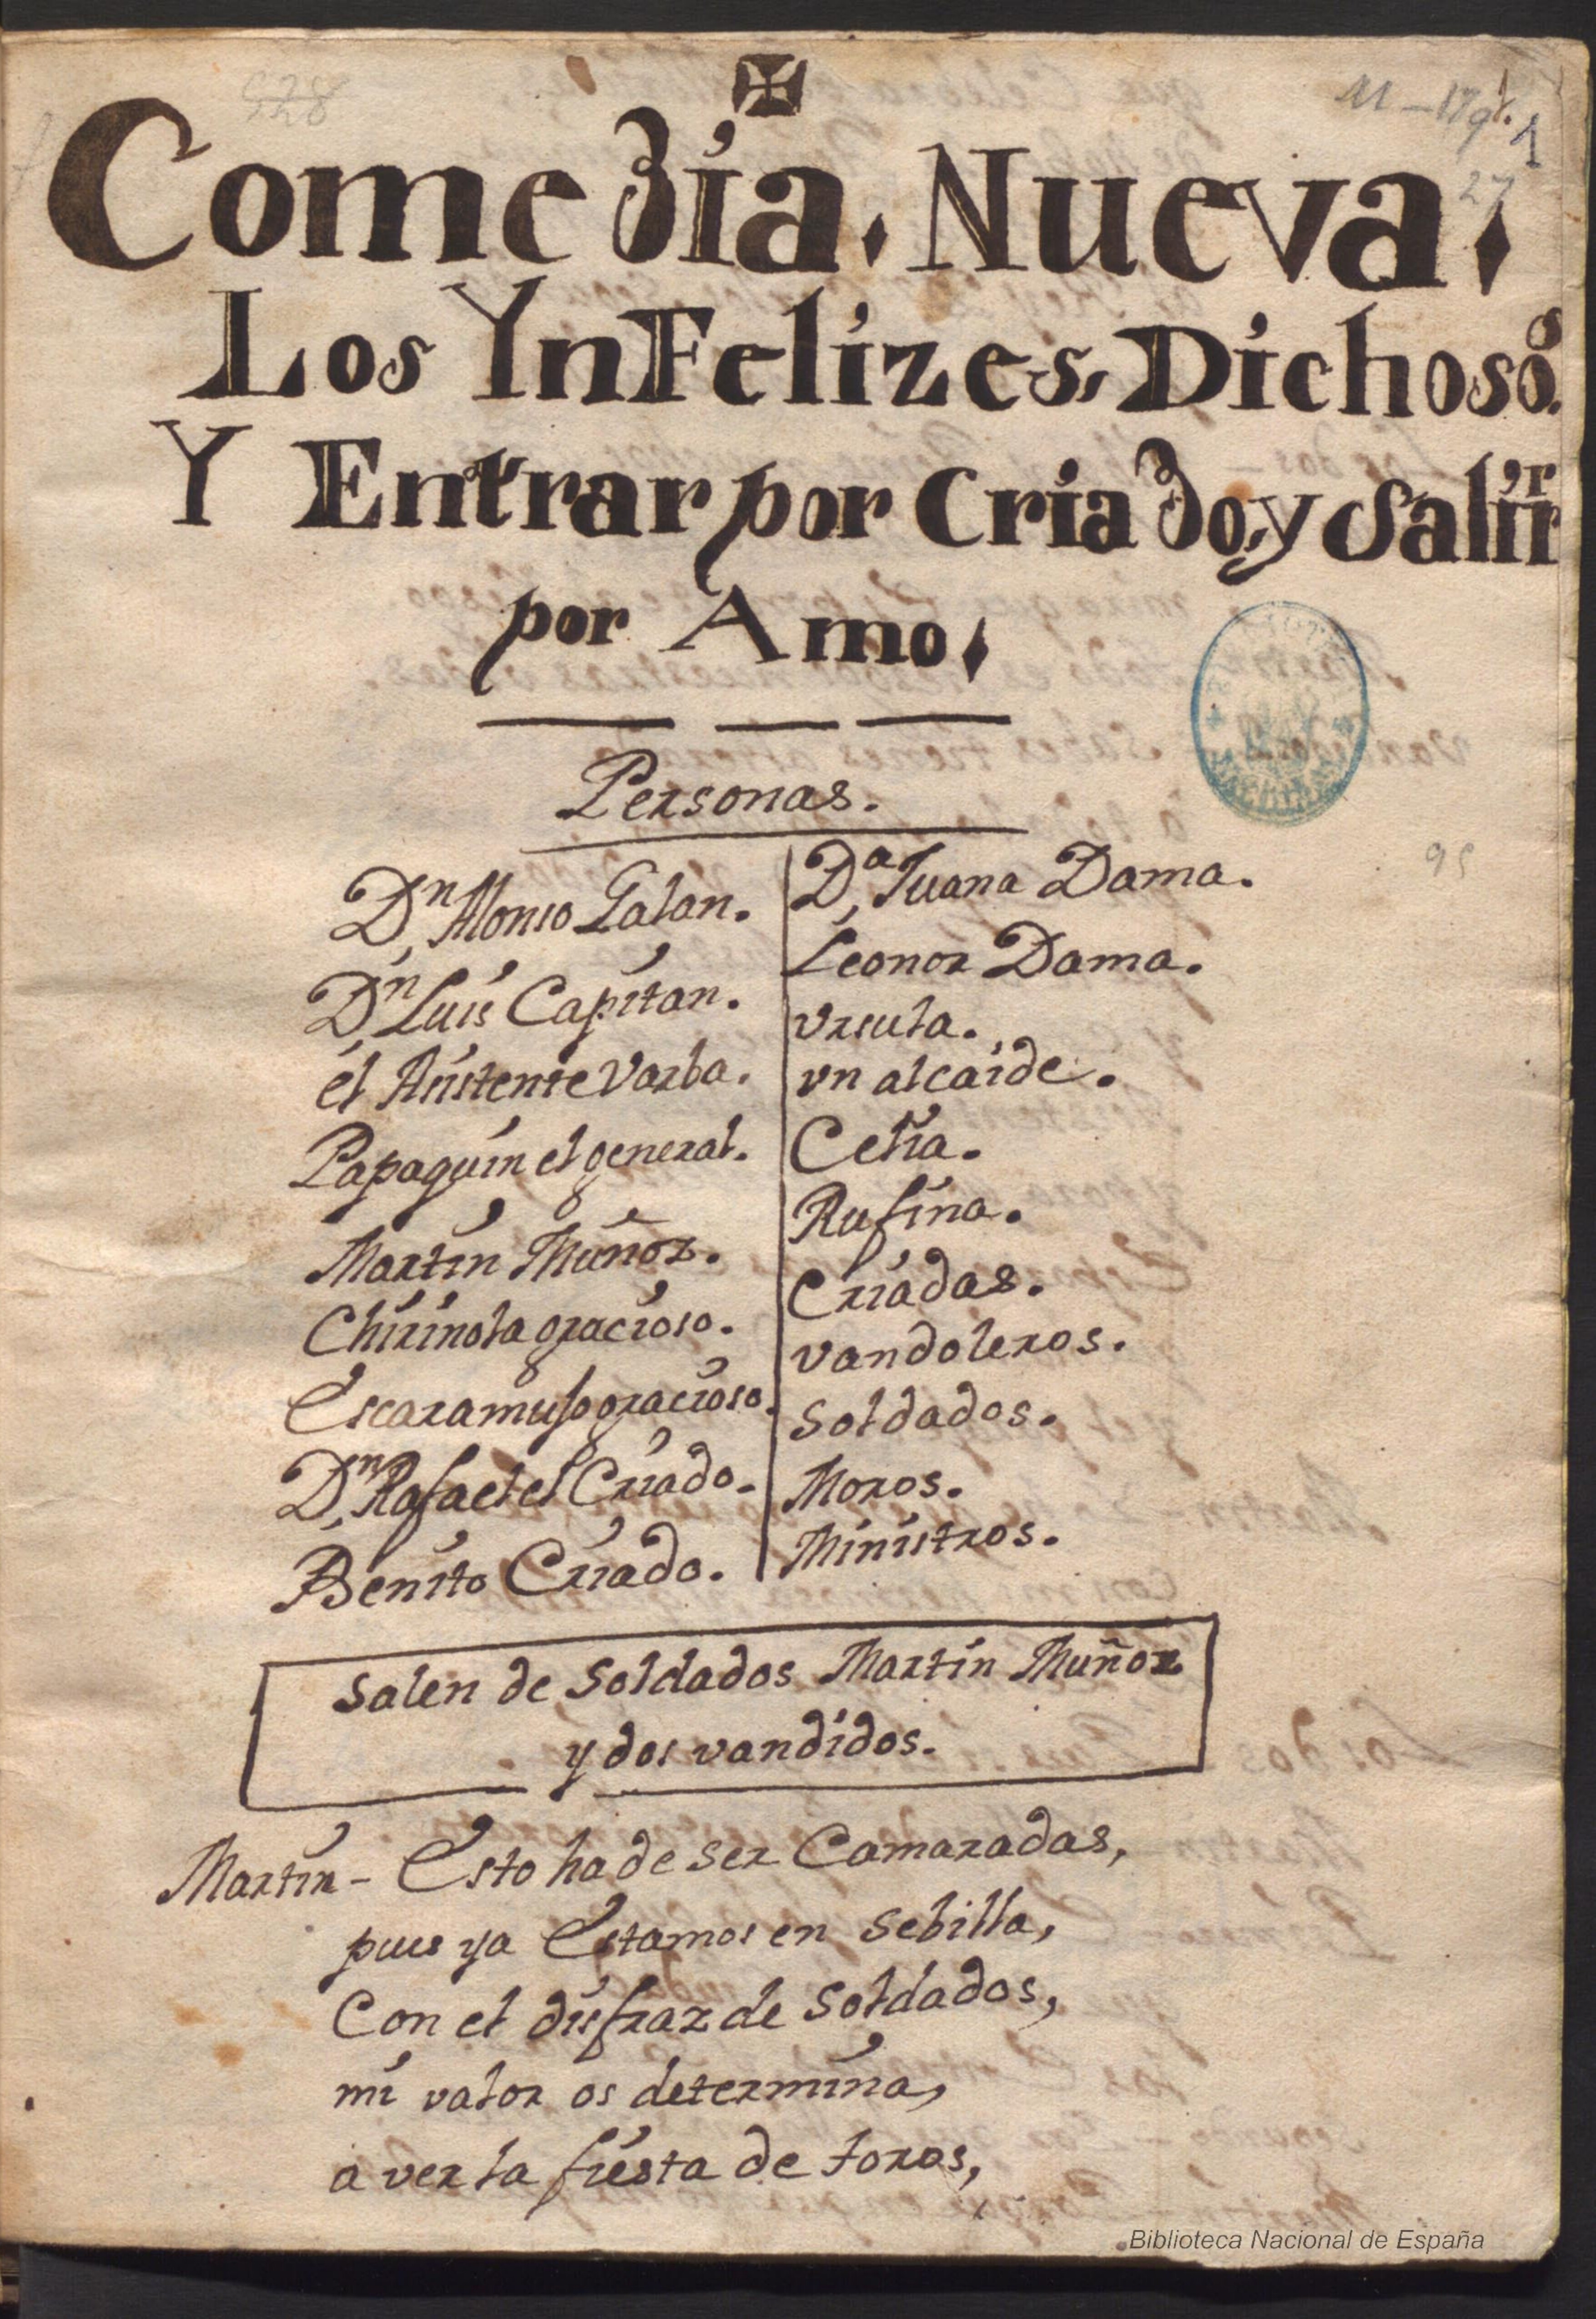 528
11-179
1
27
Comedia. Nueva.
Los YnFelizes, Dichosos.
Y Entrar por Criado, y Salir
por Amo.
Personas.
Dn Alonso Galan.
Dn Luis Capitan.
el Asistente Varba.
Papaquin el general.
Martin Muñoz.
Chirinola gracioso.
Escaramuso gracioso.
Dn Rafael el Criado.
Benito Criado.
Da Juana Dama.
Leonor Dama.
Vrsula.
vn alcaide.
Celia.
Rufina.
Criadas.
vandoleros.
Soldados.
Moros.
Ministros.
95
Salen de Soldados Martin Muñoz
y dos vandidos.
Martin - Esto ha de ser Camaradas,
pues ya Estamos en Sebilla,
Con el disfraz de Soldados,
mi valor os determina,
a ver la fiesta de toros,
Biblioteca Nacional de España